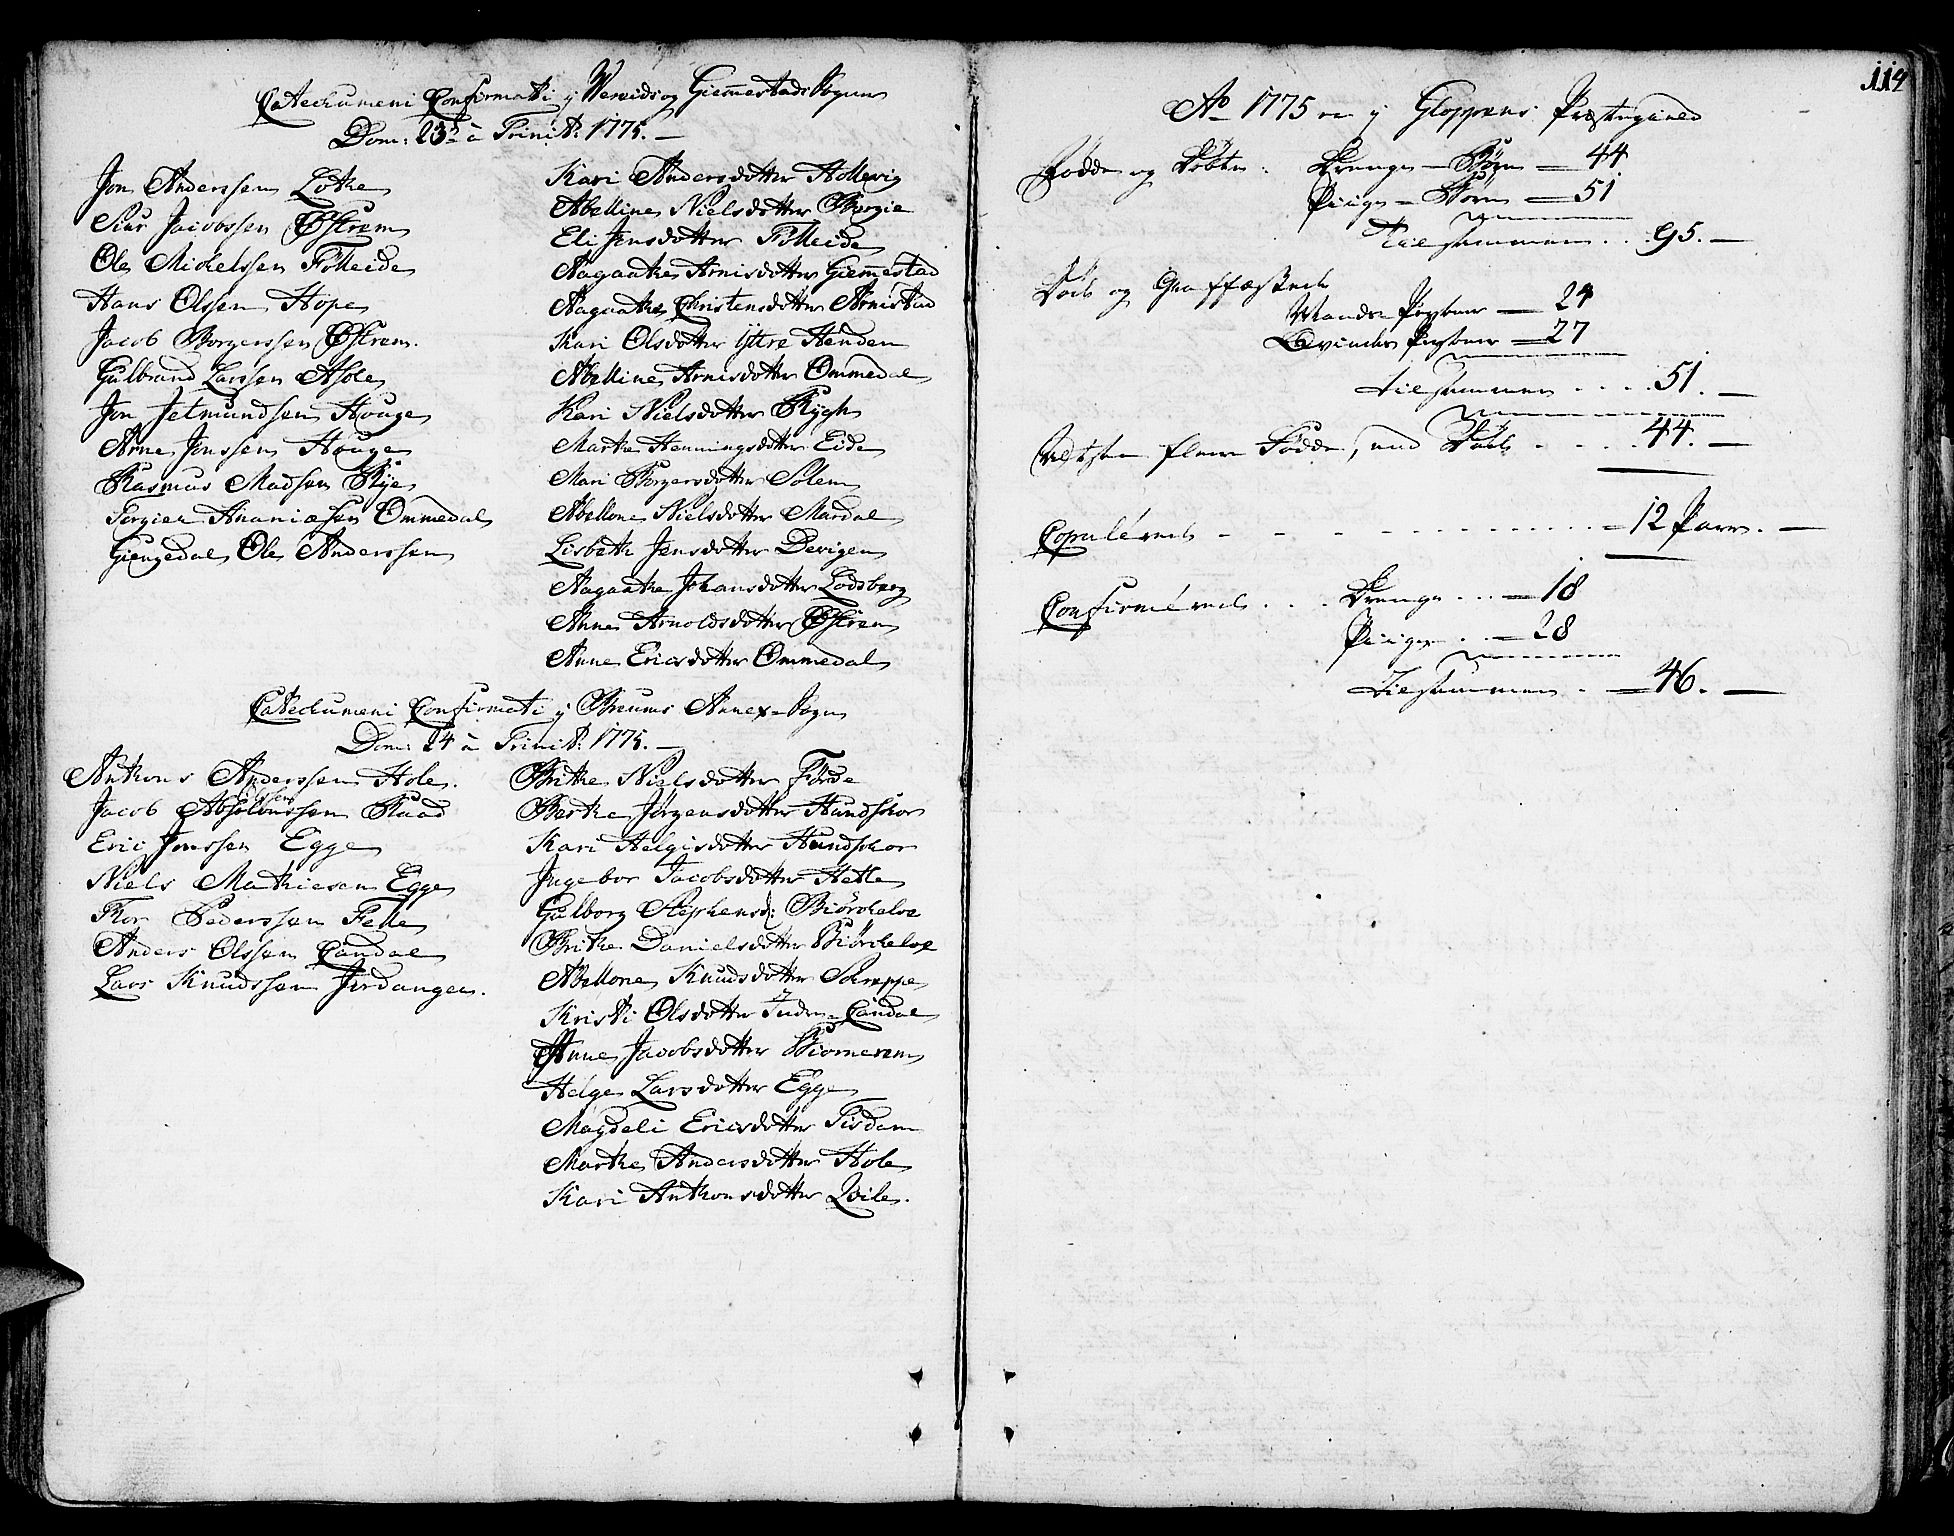 Catechumeni Confirmati y Vereids og Giemmestads Sogne
Dom: 23 à Trinit: 1775.
Jon Anderssen Lothe
Siur Jacobssen Østrem
Ole Mickelssen Fölleide
Hans Olssen Hope
Jacob Borgerssen Østrem.
Gulbrand Larssen Aßle
Jon Jetmundsen Houge
Arne Jonssen Houge
Rasmus Madsen Rye
Ananiæsen Ommedal
Giengedal Ole Anderssen
Kari Andersdotter Hollevig
Abelline Nielsdotter
Eli Jensdotter Fölleide
Aagaathe Arnisdotter Giemmestad
Aagaathe Christensdotter Arnistad
Kari Olsdotter Ytre Henden
Abelline Arnisdotter Ommedal
Kari Nielsdotter Rygh
Marthe Henningsdotter Eide
Mari Borgersdotter Solem
Abellone Nielsdotter Mardal
Lisbeth Jensdotter Devigen
Aagaathe Johansdotter Lodsberg
Anne Arnoldsdotter Østrem
Anne Ericsdotter Ommedal
Catechumeni Confirmati y Breums Annex-Sogn
Dom: 24 à Trinit: 1775.
Anthons Anderssen Hole.
Jacob Absolonssen Raad
Eric Jonssen Egge
Niels Mathiesen Egge
Thor Pederssen Felle
Anders Olssen Candal
Lars Knudssen Jordanger.
Brithe Nielsdotter Førde
Berthe Jørgensdotter Hundskor
Kari Helgisdotter Hundskor
Ingebor Jacobsdotter Hetle
Gulborg Stephensd: Biørcheloe
Brithe Danielsdotter Biørcheloe
Abellone Knudsdotter Skreppe
Kristi Olsdotter Indre-Candal
Anne Jacobsdotter
Helge Larsdotter Egge
Magdeli Ericsdotter Tisdam
Marthe Andersdotter Hole
Kari Anthonsdotter Qvile.
114
Ao 1775 er y Gloppens Præstegield
Fødde og Døbte: Drenge-Børn = 44
Piige-Børn = 51
Tilsammen . . 95.
Døde og Graffæstede
Mands Personer - 24
Qvindes Personer = 27
Tilsammen . . . . 51.
fleere Fødde, end Døde . . . . 44.
Copulérede - - - - 12 Parr.
Confirmérede . . . Drenge . . . = 18
Piiger . - 28
Tilsammen . = 46.